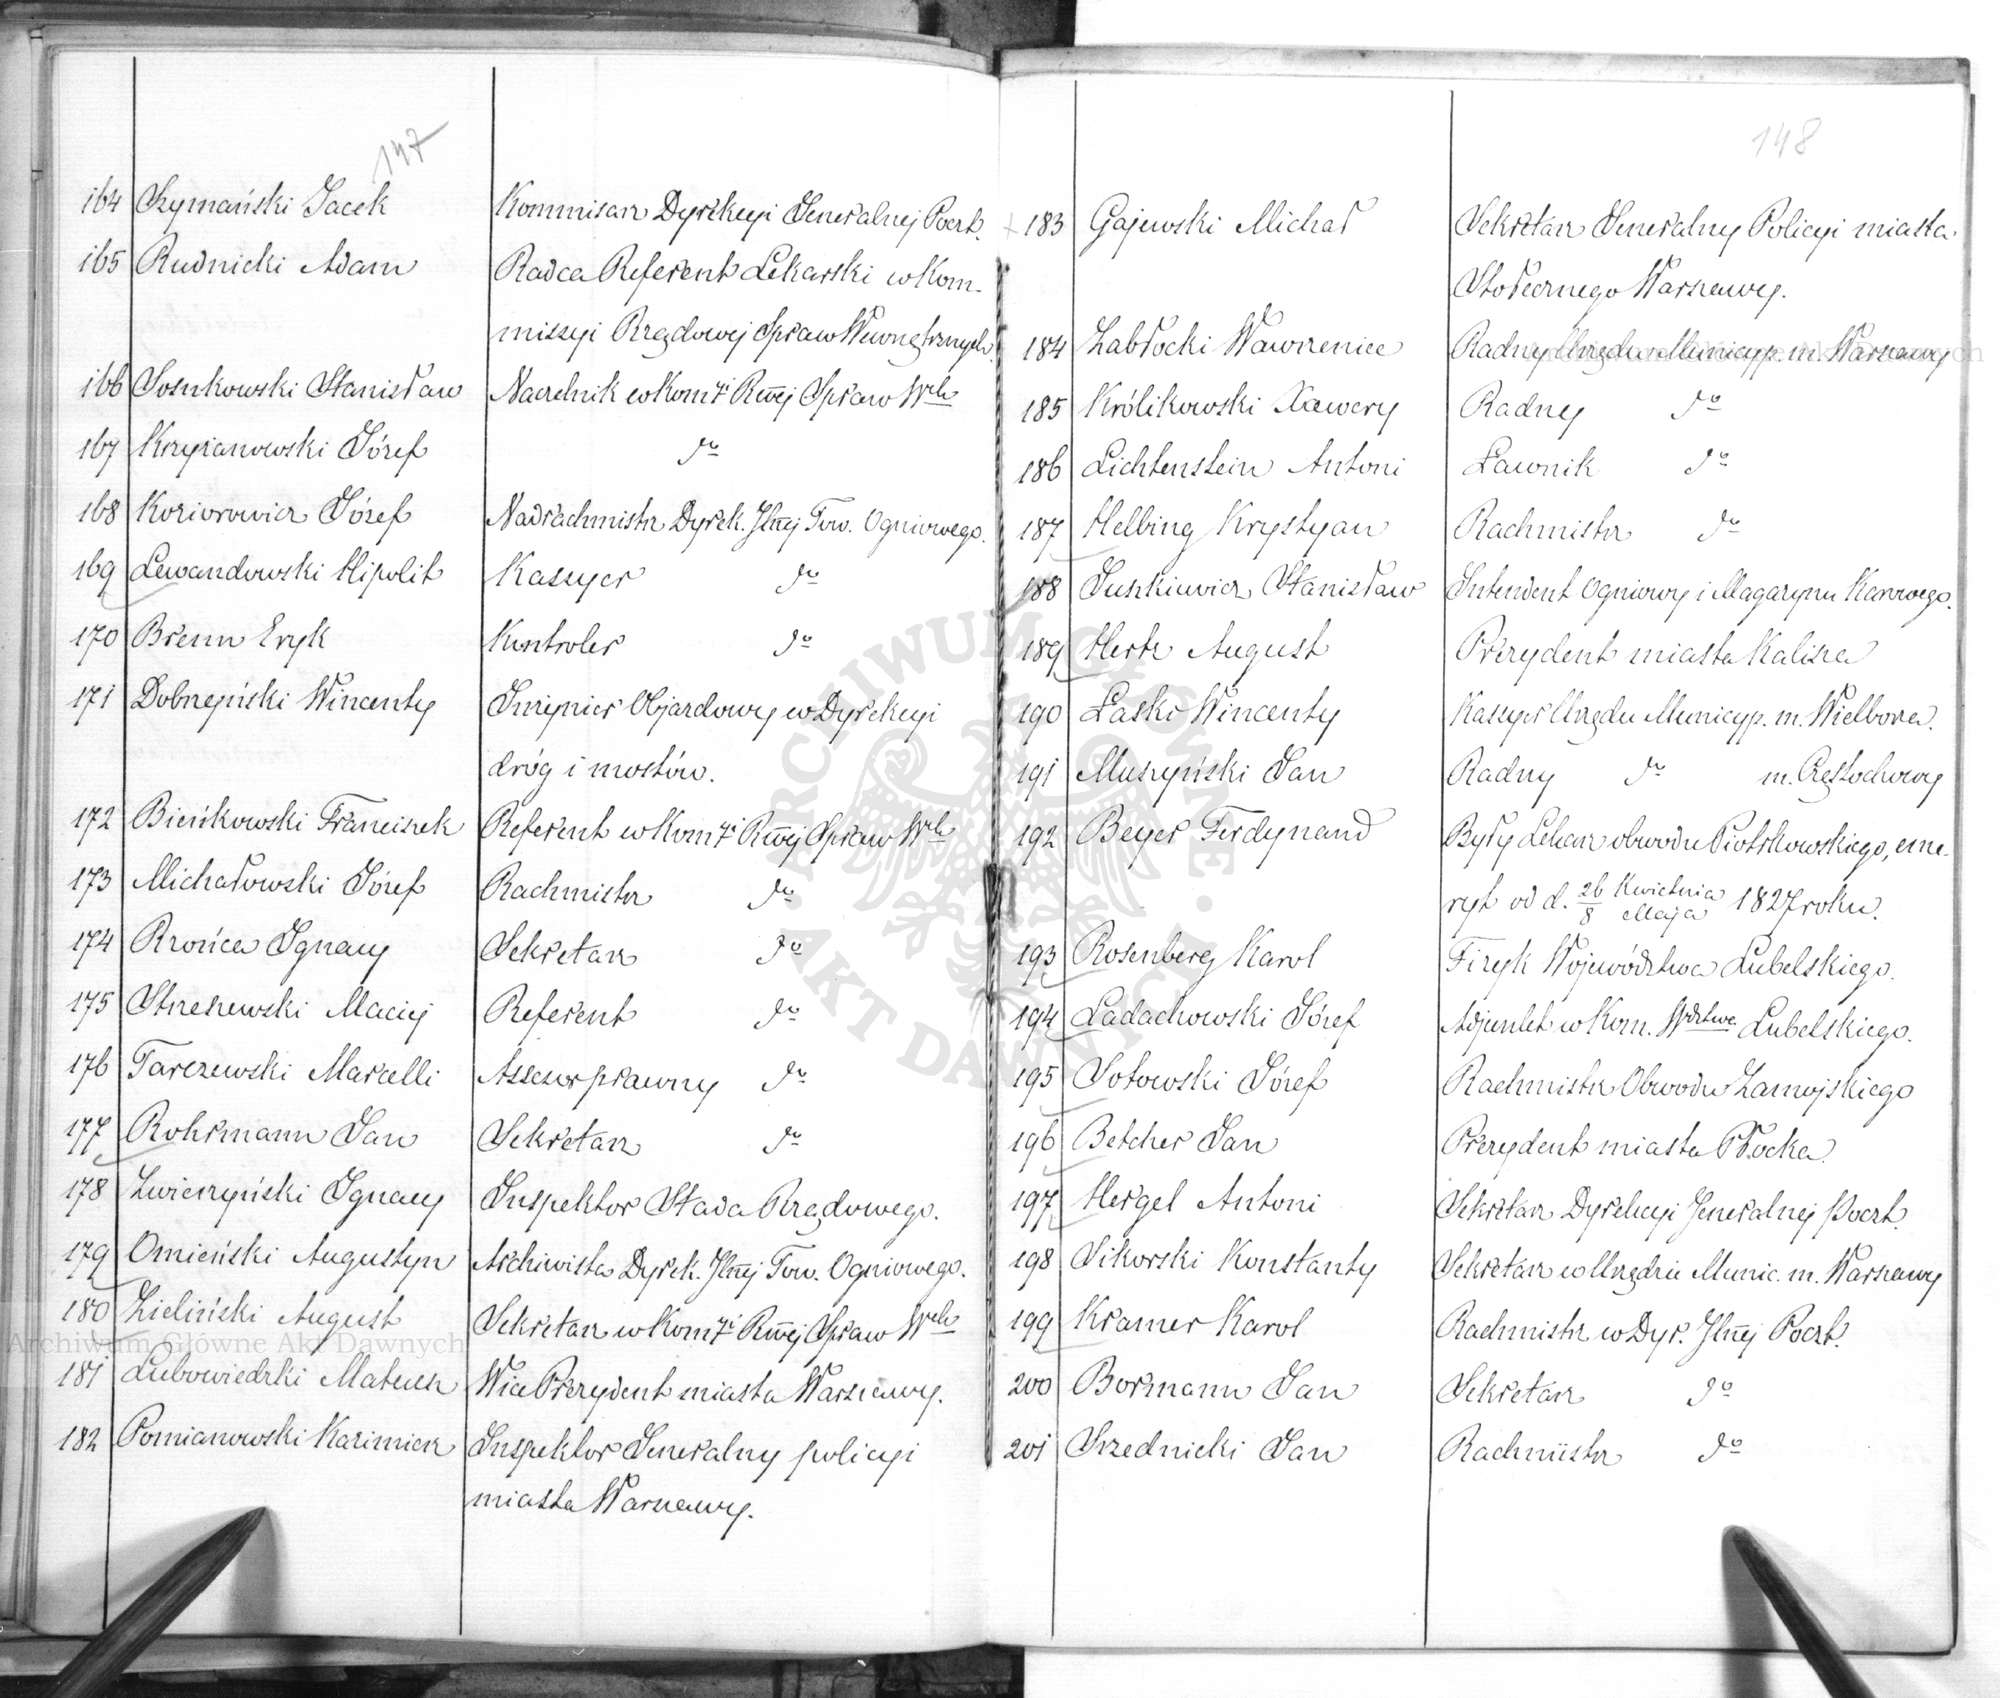 147
164 Szymański Jacek Kommisarz Dyrekcyi Jeneralnej Poczt.
165 Rudnicki Adam Radca Referent Lekarski w Kom-
missyi Rządowej Spraw Wewnętrznych.
166 Sosnkowski Stanisław Naczelnik w Kom. Rwej Spraw Wch
167 Krzyżanowski Józef do
168 Koziorowicz Józef Nadrachmistrz Dyrek. Jlnej Tow. Ogniowego.
169 Lewandowski Hipolit Kassyer do
170 Brenn Eryk Kontroler do
171 Dobrzyński Wincenty Inżynier Objazdowy w Dyrekcyi
dróg i mostów.
172 Bieńkowski Franciszek Referent w Kom. Rwej Spraw Wch
173 Michałowski Józef Rachmistrz do
174 Rrońca Ignacy Sekretarz do
175 Strzeszewski Maciej Referent do
176 Tarczewski Marcelli Assesor prawny do
177 Rohrmann Jan Sekretarz do
178 Zwierzyński Ignacy Inspektor Stada Rządowego.
179 Omieński Augustyn Archiwista Dyrek. Jlnej Tow. Ogniowego.
180 Zieliński August Sekretarz w Kom. Rwej Spraw Wch
181 Lubowiedzki Mateusz Wice Prezydent miasta Warszawy.
182 Pomianowski Kazimierz Inspektor Jeneralny policyi
miasta Warszawy.
148
183 Gajewski Michał Sekretarz Jeneralny Policyi miasta
Stołecznego Warszawy.
184 Zabłocki Wawrzeniec Radny Urzędu Municyp. m. Warszawy
185 Królikowski Xawery Radny do
186 Lichtenstein Antoni Ławnik do
187 Helbing Krystyan Rachmistrz do
188 Juszkiewicz Stanisław Intendent Ogniowy i Magazynu Karowego.
189 Hertz August Prezydent miasta Kalisza
190 Łaski Wincenty Kassyer Urzędu Municyp. m. Wielbora.
191 Muszyński Jan Radny do m. Częstochowy
192 Beyer Ferdynand Były Lekarz obwodu Piotrkowskiego, eme-
ryt od d. 26/8 Kwietnia/Maja 1827 roku.
193 Rosenberg Karol Fizyk Województwa Lubelskiego.
194 Ładachowski Józef Adjunkt w Kom. Wdztwa Lubelskiego.
195 Sotowski Józef Rachmistrz Obwodu Zamojskiego
196 Betcher Jan Prezydent miasta Płocka
197 Hergel Antoni Sekretarz Dyrekcyi Jeneralnej Poczt.
198 Sikorski Konstanty Sekretarz w Urzędzie Munic. m. Warszawy
199 Kramer Karol Rachmistrz w Dyr. Jlnej Poczt.
200 Bormann Jan Sekretarz do
201 Srzednicki Jan Rachmistrz do
ARCHIWUM GŁÓWNE · AKT DAWNYCH ·
Archiwum Główne Akt Dawnych
Archiwum Główne Akt Dawnych